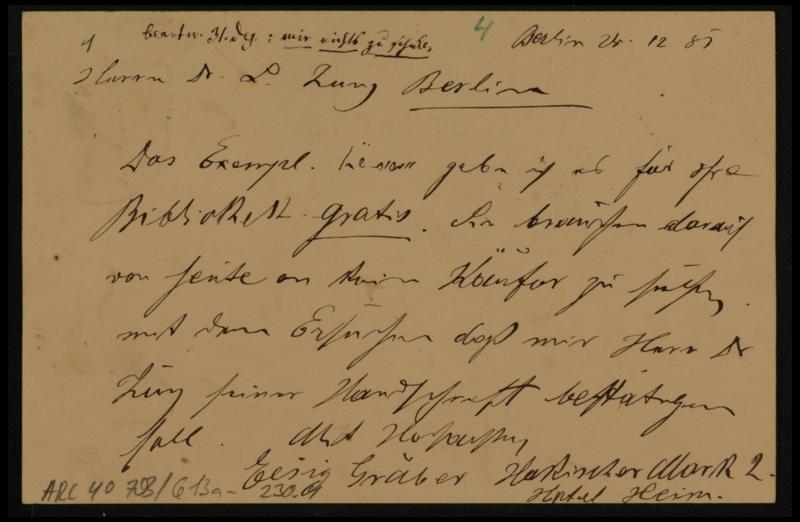 4 beantw. 31. Dez. : mir nichts zu schicken 4 Berlin 24. 12 85
Herrn Dr. L. Zunz Berlin
Das Exempl. geben ich es für Ihre
Bibliothek gratis. Sie brauchen darauf
von heute an kein Käufer zu suchen,
mit dem Ersuchen daß mir Herr Dr
Zunz seiner Handschrift bestätigen
soll. Mit Hochachtung
Eesig Gräber Hakischer Markt 2.
ARC 40 793/G13a- 230.01 Hotel Heim.